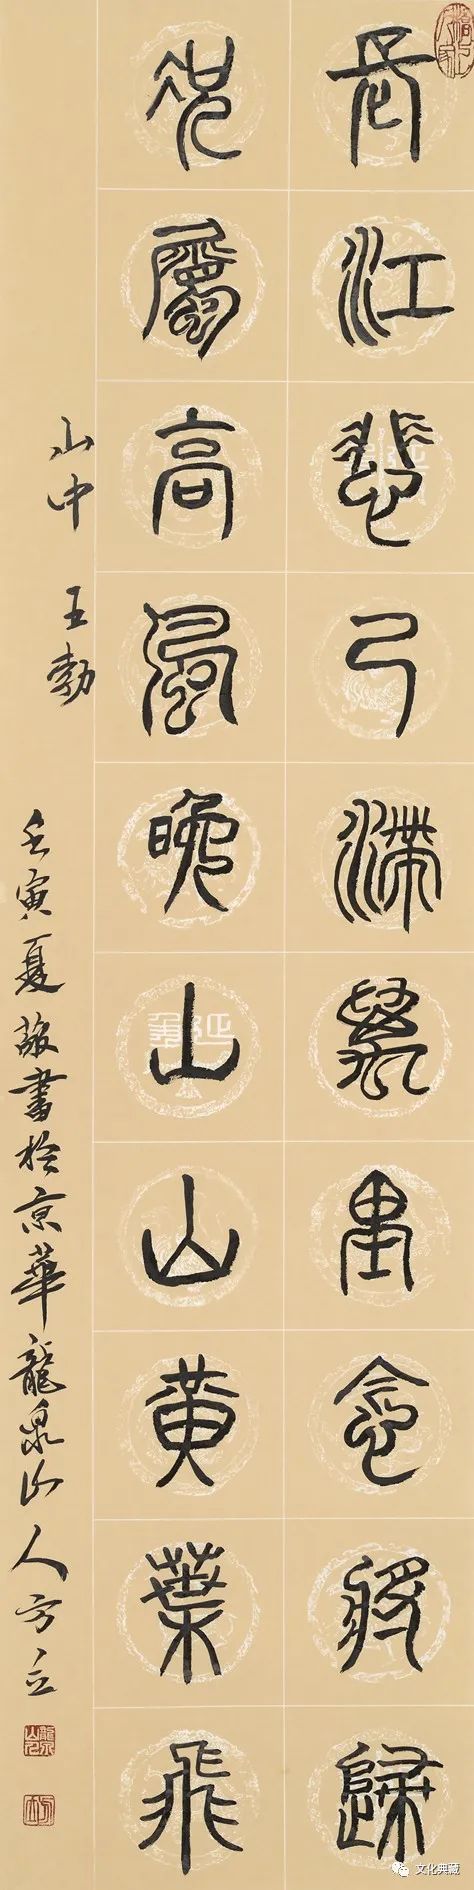 長江悲已滯萬里念將歸
況屬高風晚山山黃葉飛
山中 王勃
壬寅夏敬書於京華龍泉山人方立
文化典藏